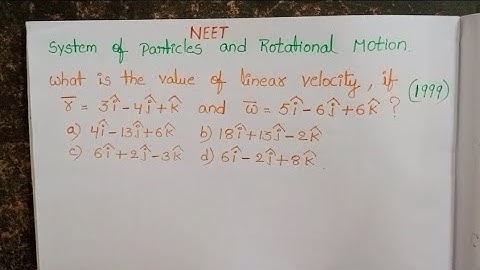 NEET
System of Particles and Rotational Motion.
What is the value of linear velocity, if
r̅ = 3î-4ĵ+k̂ and ω̅ = 5î-6ĵ+6k̂ ? (1999)
a) 4î-13ĵ+6k̂ b) 18î+13ĵ-2k̂
c) 6î+2ĵ-3k̂ d) 6î-2ĵ+8k̂